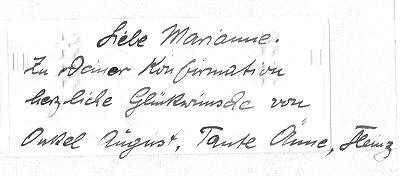 Liebe Marianne.
Zu Deiner Konfirmation
herzliche Glückwünsche von
Onkel August, Tante Änne, Heinz